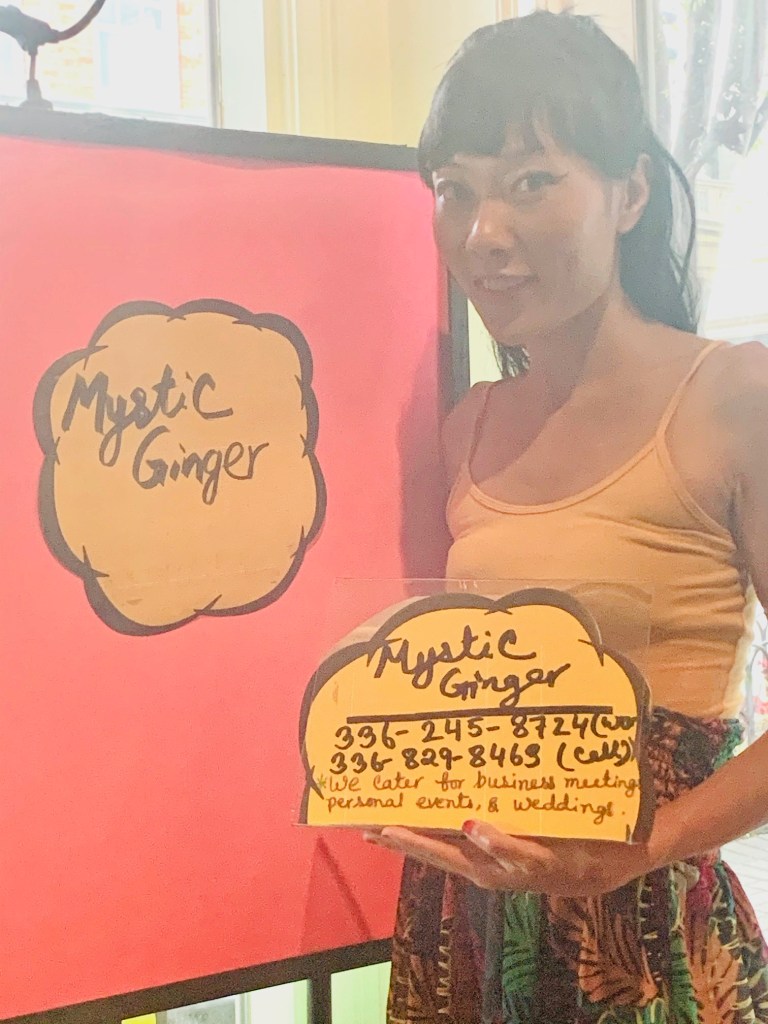 Mystic
Ginger
Mystic
Ginger
336-245-8724 (wor
336-829-8469 (cell)
*We cater for business meeting
personal events, & weddings.